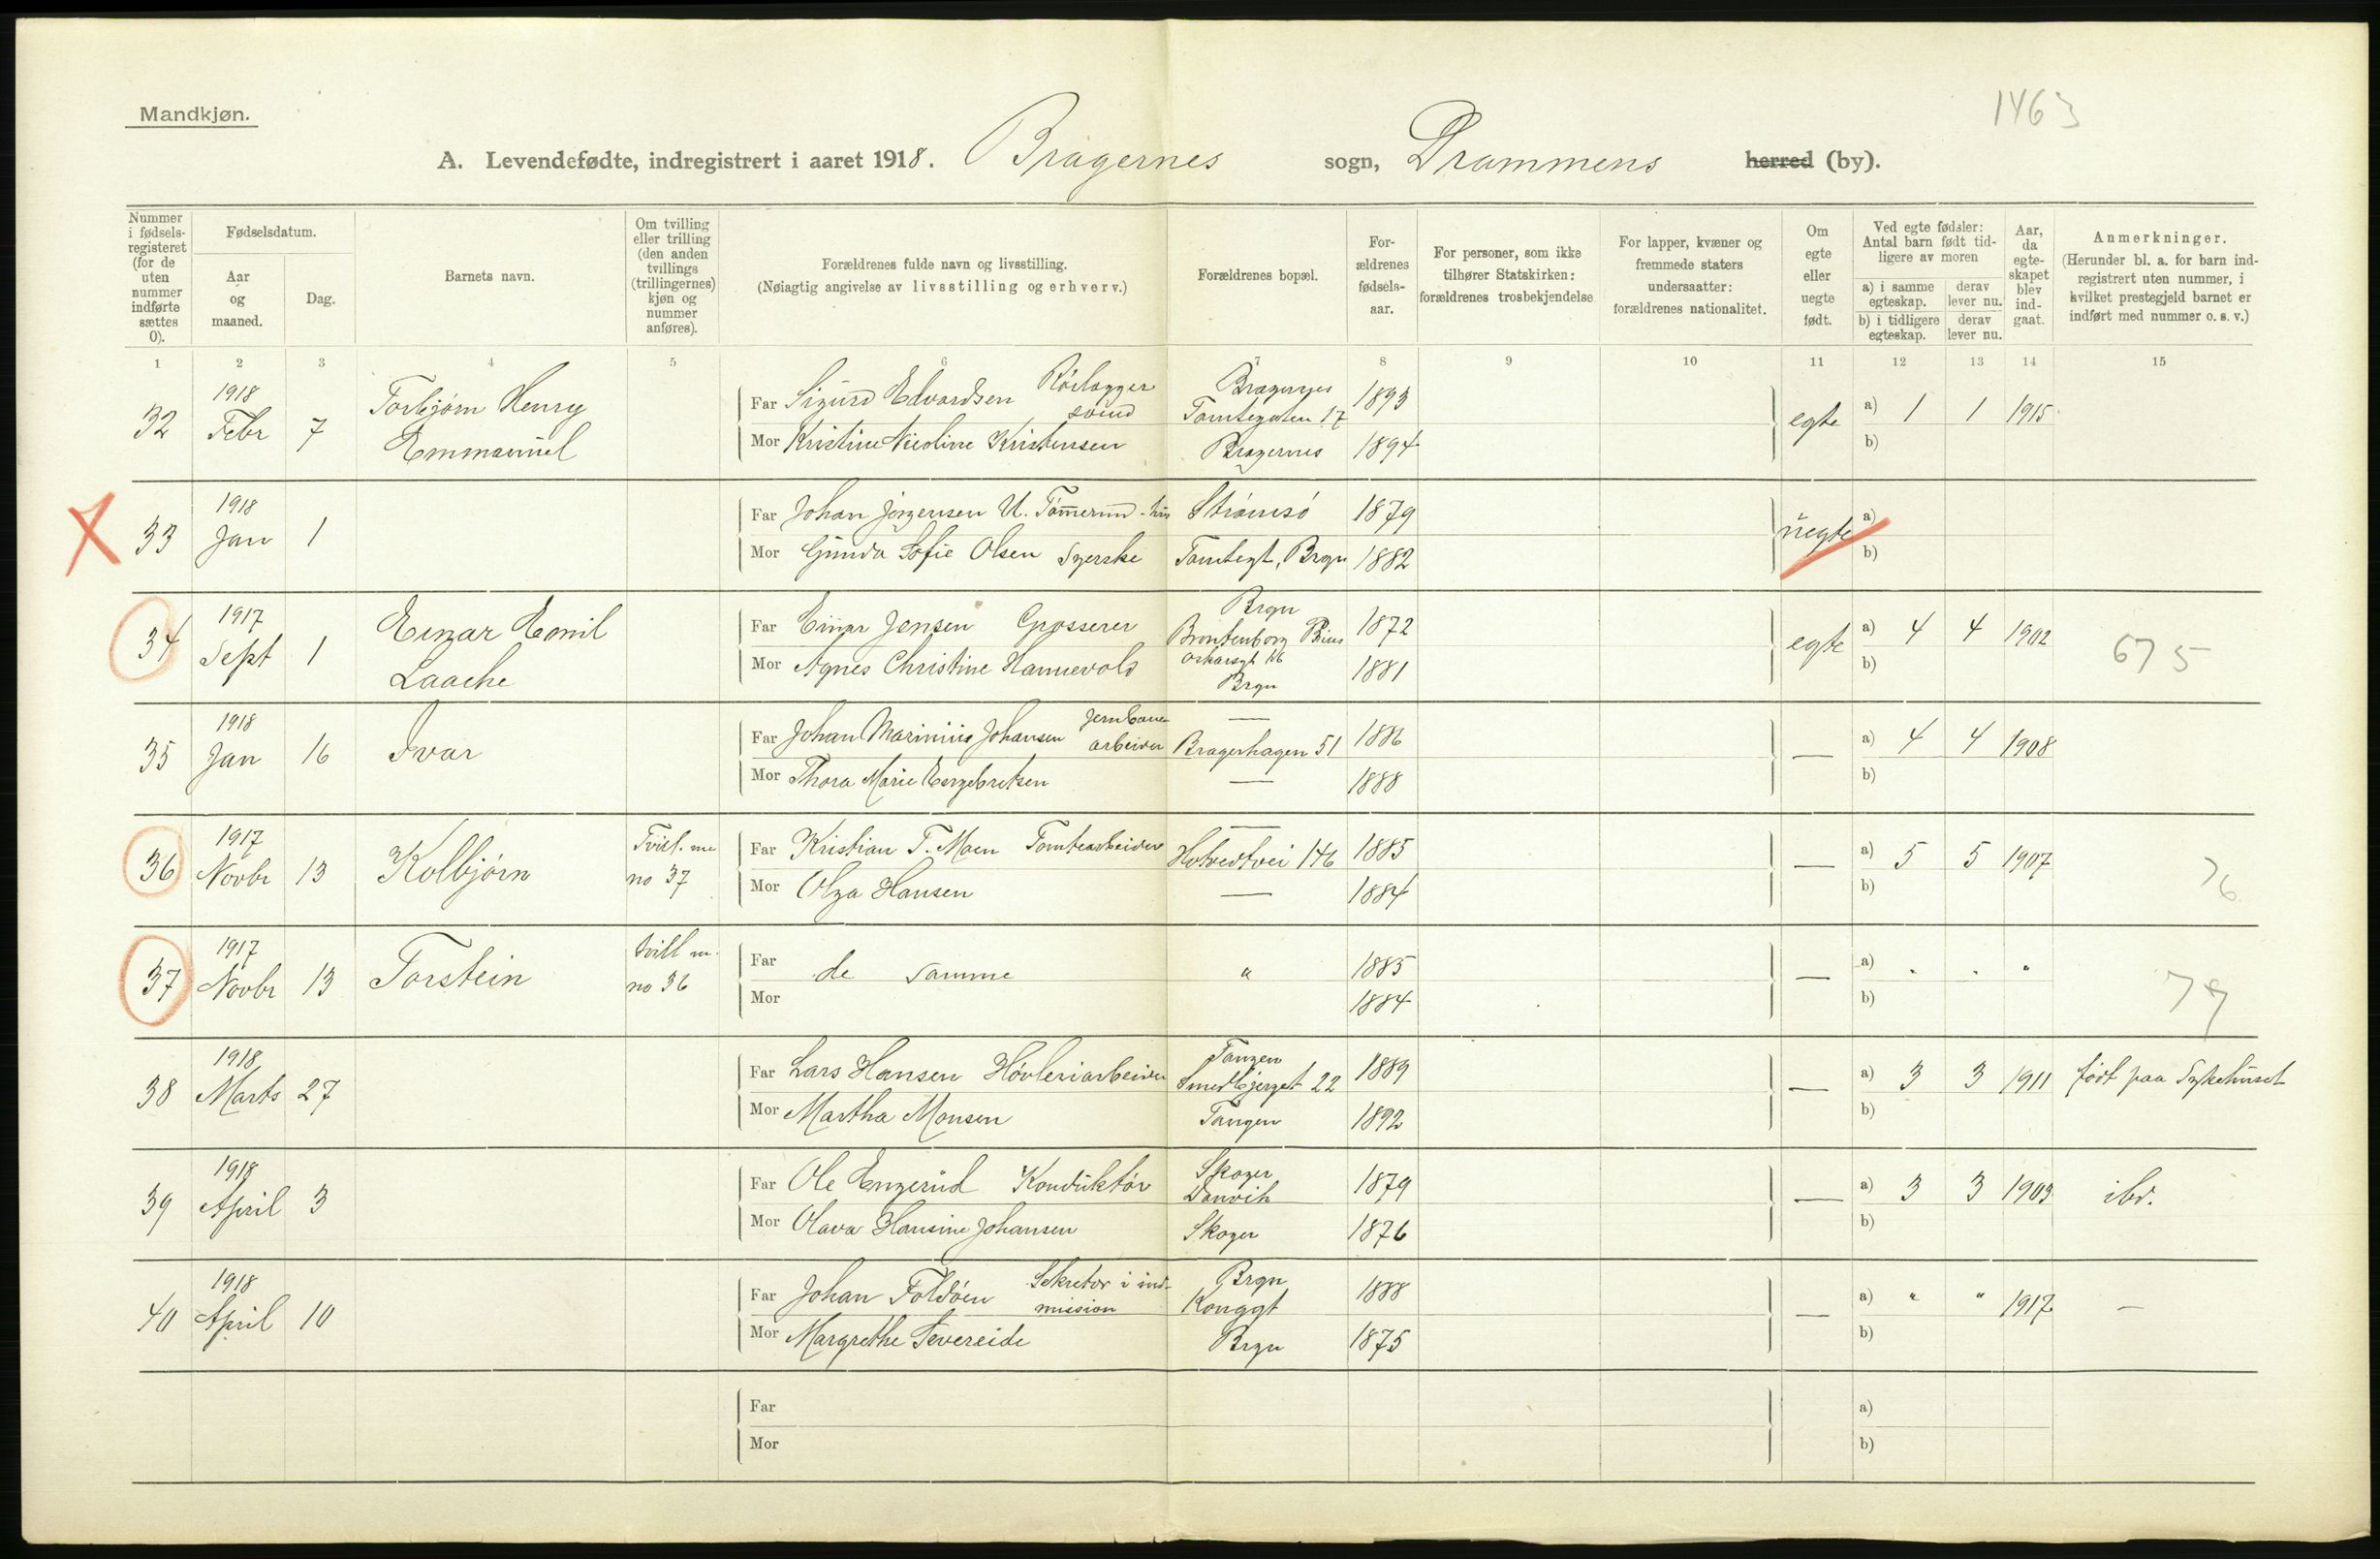 Mandkjøn.
1463
A. Levendefødte, indregistrert i aaret 1918. Bragernes sogn, Drammens herred (by).
Nummer i fødselsregisteret (for de uten nummer indførte sættes 0).
Fødselsdatum.
Aar og maaned.
Dag.
Barnets navn.
Om tvilling eller trilling (den anden tvillings (trillingernes) kjøn og nummer anføres).
Forældrenes fulde navn og livsstilling.
(Nøiagtig angivelse av livsstilling og erhverv.)
Forældrenes bopæl.
Forældrenes fødselsaar.
For personer, som ikke tilhører Statskirken: forældrenes trosbekjendelse
For lapper, kvæner og fremmede staters undersaatter: forældrenes nationalitet.
Om egte eller uegte født.
Ved egte fødsler: Antal barn født tidligere av moren
a) i samme egteskap. derav lever nu.
b) i tidligere egteskap. derav lever nu.
Aar, da egteskapet blev indgaat.
Anmerkninger.
(Herunder bl. a. for barn indregistrert uten nummer, i hvilket prestegjeld barnet er indført med nummer o. s. v.)
1 2 3 4 5 6 7 8 9 10 11 12 13 14 15
32 1918 Febr 7 Torbjørn Henry Emmanuel
Far Sigurd Edvardsen Rørlægger svend Bragernes Tomtegaten 17 1893 egte a) 1 1 1915
Mor Kristine Nicoline Kristensen Bragernes 1894 b)
33 1918 Jan 1
Far Johan Jörgensen U. Strömsö 1879 uegte a)
Mor Gunda Sofie Olsen Syerske Tomtegt, Brgn 1882 b)
34 1917 Sept 1 Einar Emil Laache
Far Einar Jensen Grosserer Brgn 1872 egte a) 4 4 1902 675
Mor Agnes Christine Hannevold Oskarsgt Brgn 1881 b)
35 1918 Jan 16 Ivar
Far Johan Marinius Johansen Jernbane arbeider — Bragerhagen 51 1886 — a) 4 4 1908
Mor Thora Marie Engebretsen — 1888 b)
36 1917 Novbr 13 Kolbjørn Tvill. m no 37
Far Kristian T. Moen Tomtearbeider — Hotvedtvei 146 1885 — a) 5 5 1907 76
Mor Olga Hansen — 1884 b)
37 1917 Novbr 13 Torstein tvill m. no 36
Far de samme " 1885 — a) " " " 77
Mor 1884 b)
38 1918 Marts 27
Far Lars Hansen Høvleriarbeider Tangen Smedbjerggt 22 1889 — a) 3 3 1911 født paa Sykehuset
Mor Martha Monsen Tangen 1892 b)
39 1918 April 3
Far Ole Engerud Konduktör Skoger Danvik 1879 — a) 3 3 1903 ibd.
Mor Olava Hansine Johansen Skoger 1876 b)
40 1918 April 10
Far Johan Foldöen Sekretær i ind- mission Brgn Konggt 1888 — a) " " 1917 —
Mor Margrethe Tevereide Brgn 1875 b)
Far a)
Mor b)